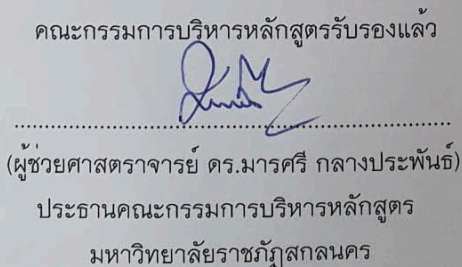 คณะกรรมการบริหารหลักสูตรรับรองแล้ว
(ผู้ช่วยศาสตราจารย์ ดร.มารศรี กลางประพันธ์)
ประธานคณะกรรมการบริหารหลักสูตร
มหาวิทยาลัยราชภัฏสกลนคร